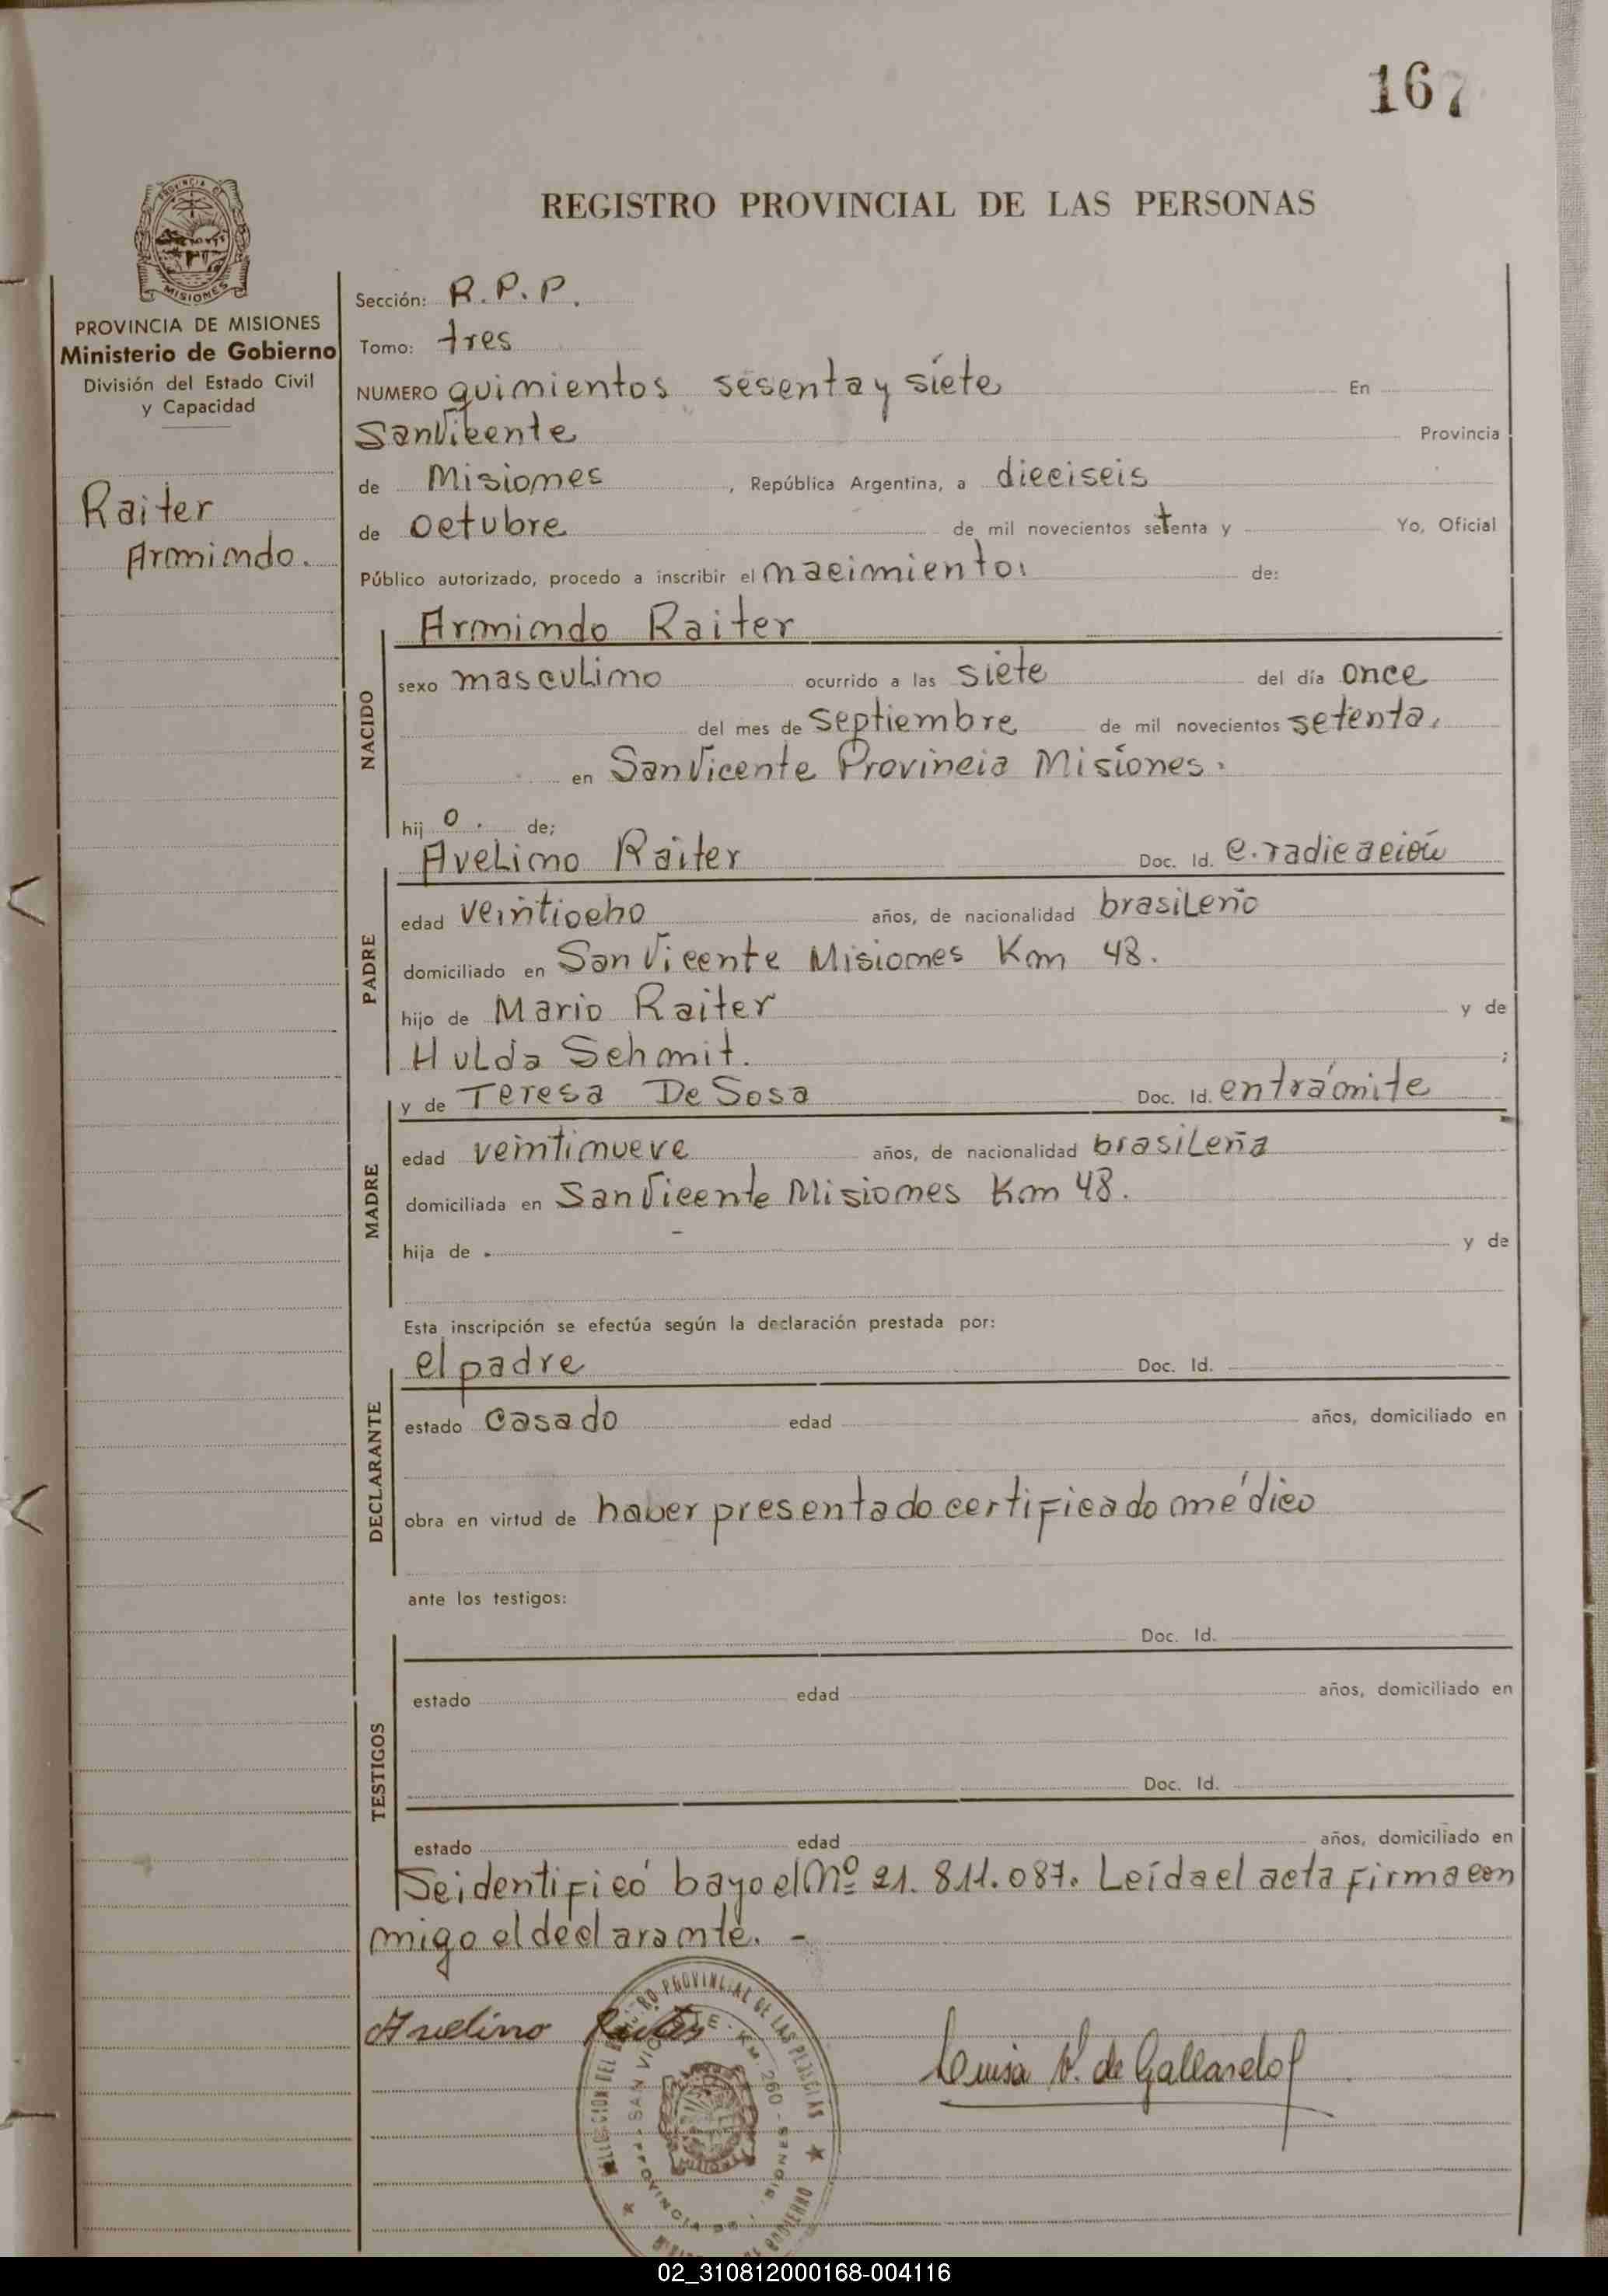 167
REGISTRO PROVINCIAL DE LAS PERSONAS
PROVINCIA DE MISIONES
PROVINCIA DE MISIONES
Ministerio de Gobierno
División del Estado Civil
y Capacidad
Raiter
Armindo.
Sección: R.P.P.
Tomo: tres
NUMERO quinientos sesenta y siete En
San Vicente Provincia
de Misiones , República Argentina, a dieciseis
de octubre de mil novecientos setenta y Yo, Oficial
Público autorizado, procedo a inscribir el nacimiento de:
NACIDO
Armindo Raiter
sexo masculino ocurrido a las siete del día once
del mes de septiembre de mil novecientos setenta.
en San Vicente Provincia Misiones.
hij o. de;
PADRE
Avelino Raiter Doc. Id. C. radicación
edad veintiocho años, de nacionalidad brasileño
domiciliado en San Vicente Misiones Km 48.
hijo de Mario Raiter y de
Hulda Schmit. ;
MADRE
y de Teresa De Sosa Doc. Id. en trámite
edad veintinueve años, de nacionalidad brasileña
domiciliada en San Vicente Misiones Km 48.
hija de - y de
Esta inscripción se efectúa según la declaración prestada por:
DECLARANTE
el padre Doc. Id.
estado casado edad años, domiciliado en
obra en virtud de haber presentado certificado médico
ante los testigos:
TESTIGOS
Doc. Id.
estado edad años, domiciliado en
Doc. Id.
estado edad años, domiciliado en
Se identificó bayo el Nº 21.811.087. Leída el acta firma con
migo el declarante. -
Avelino Raiter
Luisa V. de Gallardo
PROVINCIAL DE LAS
SAN VICENTE - KM. 260 -
PROVINCIA DE
02_310812000168-004116